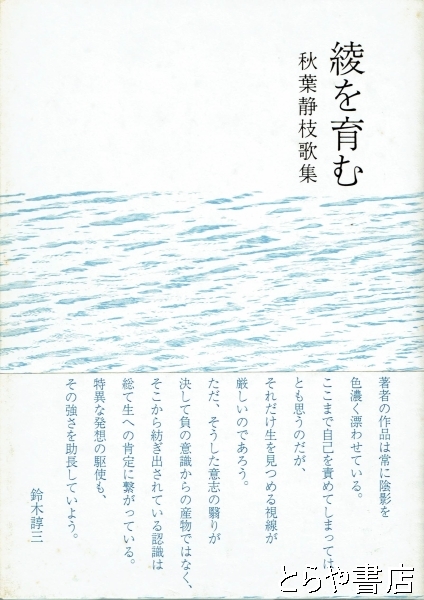 綾を育む
秋葉静枝歌集
著者の作品は常に陰影を
色濃く漂わせている。
ここまで自己を責めてしまっては、
とも思うのだが、
それだけ生を見つめる視線が
厳しいのであろう。
ただ、そうした意志の翳りが
決して負の意識からの産物ではなく、
そこから紡ぎ出されている認識は
総て生への肯定に繋がっている。
特異な発想の駆使も、
その強さを助長していよう。
鈴木諄三
とらや書店